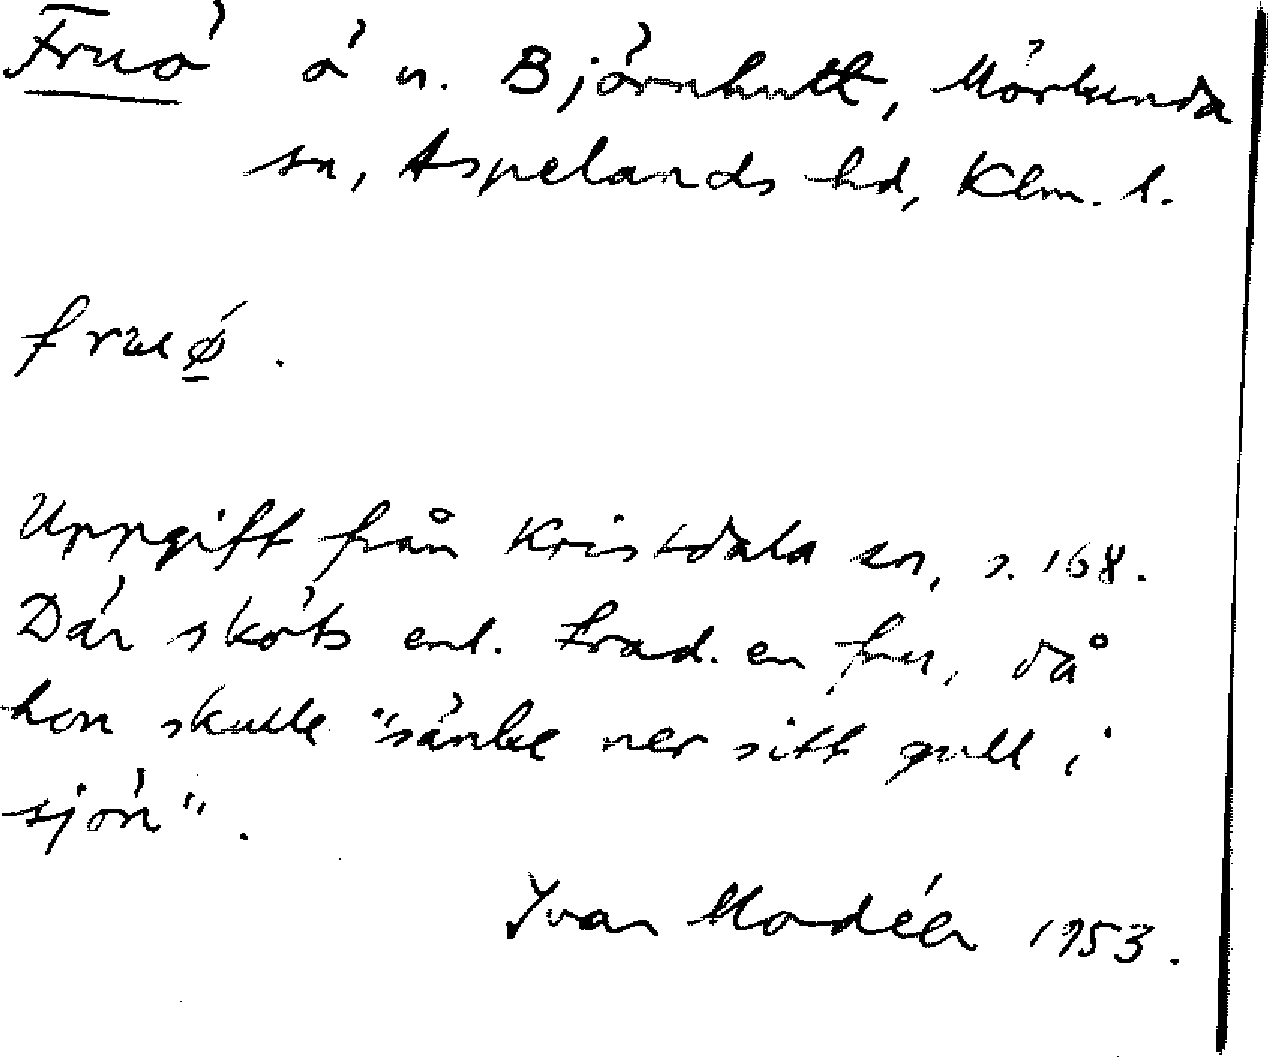 Fruö ö n. Björnhult, Mörlunda
sn, Aspelands hd, Klm. l.
fruø.
Uppgift från Kristdala sn, s. 168.
Där sköts enl. trad. en fru, då
hon skulle "sänke ner sitt gull i
sjön".
Ivar Modéer 1953.